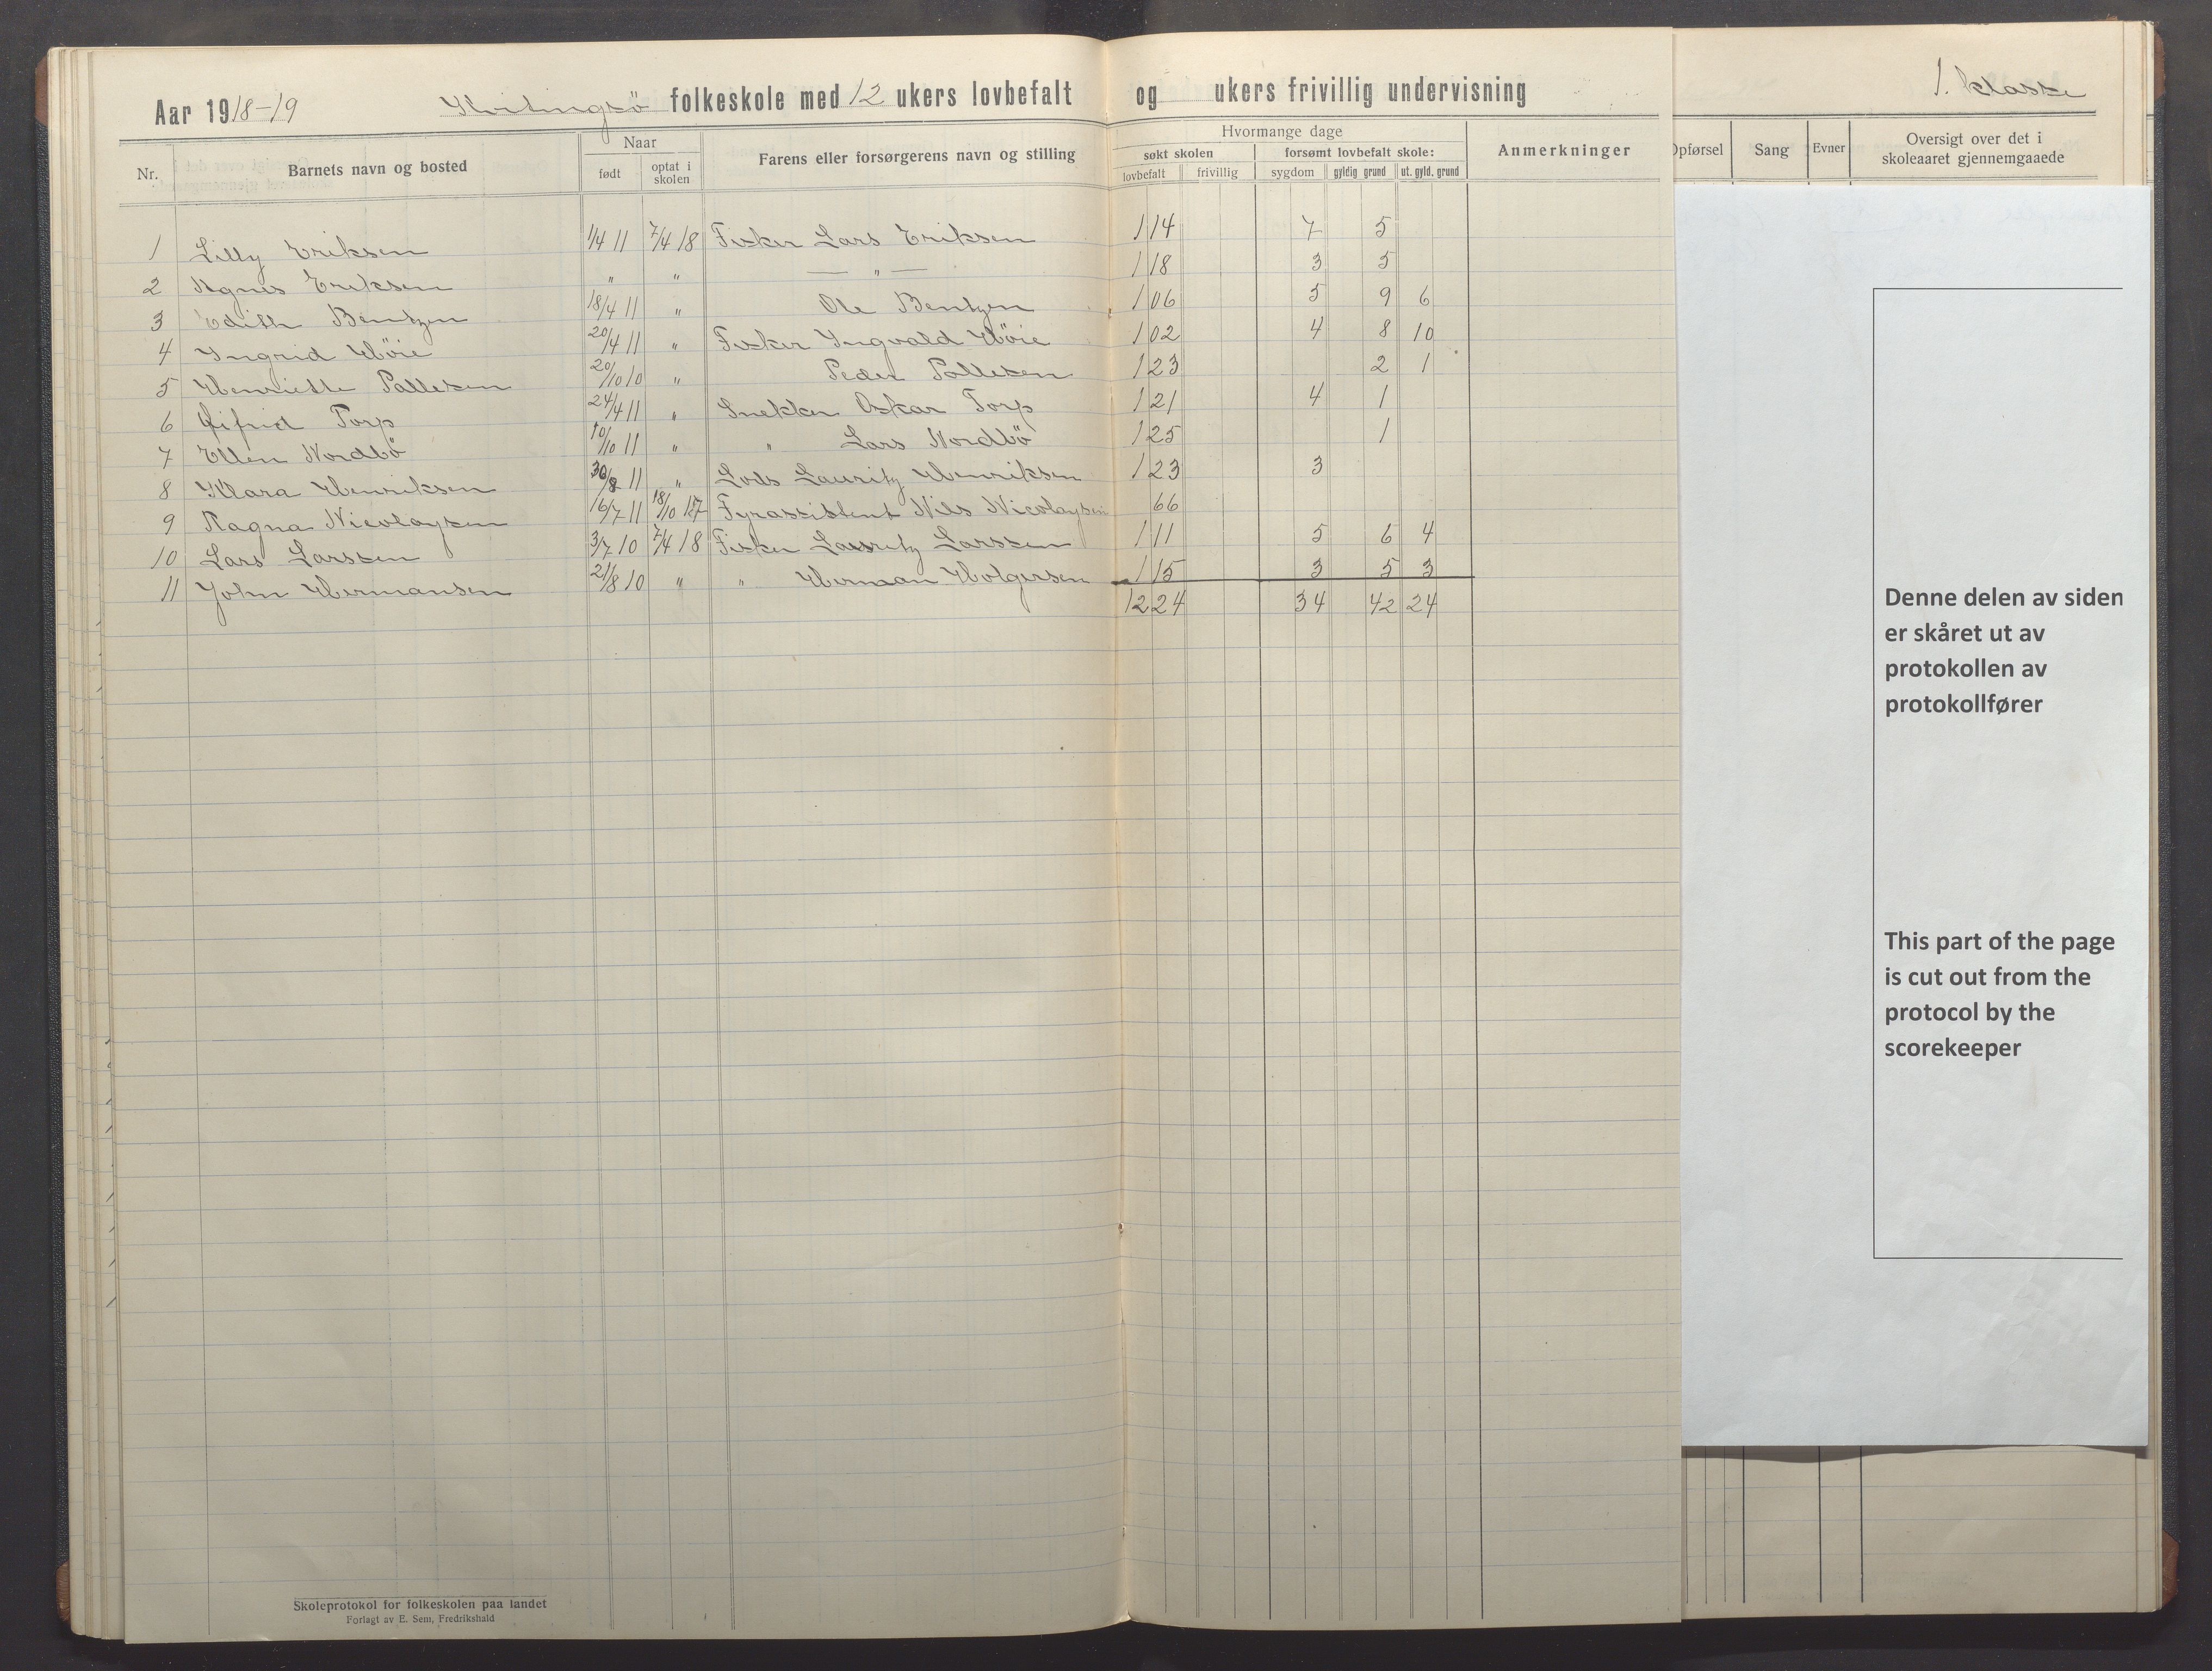 Aar 1918-19 Kvitingsö folkeskole med 12 ukers lovbefalt og ukers frivillig undervisning
1. klasse
Nr. Barnets navn og bosted Naar Farens eller forsørgerens navn og stilling Hvormange dage Anmerkninger Opførsel Sang Evner Oversigt over det i skoleaaret gjennemgaaede
født optat i skolen søkt skolen forsømt lovbefalt skole:
lovbefalt frivillig sygdom gyldig grund ut. gyld. grund
1 Lilly Eriksen 1/4 11 7/4 18 Fisker Lars Eriksen 114 7 5
2 Agnes Eriksen " " — " — 118 3 5
3 Edith Bentzen 18/4 11 " Ole Bentzen 106 5 9 6
4 Ingrid Höie 20/4 11 " Fisker Ingvald Höie 102 4 8 10
5 Henriette Pallesen 20/10 10 " Peder Pallesen 123 2 1
6 Torp 24/4 11 " Snekker Oskar Torp 121 4 1
7 Ellen Nordbö 10/10 11 " " Lars Nordbö 125 1
8 Klara Henriksen 30/8 11 " Lods Lauritz Henriksen 123 3
9 Ragna Nicolaysen 16/7 11 18/10 17 Fyrassistent Nils Nicolaysen 66
10 Lars Larssen 3/7 10 7/4 18 Fisker Lauritz Larssen 111 5 6 4
11 John Hermansen 21/8 10 " " Herman Holgersen 115 3 5 3
1224 34 42 24
Denne delen av siden
er skåret ut av
protokollen av
protokollfører
This part of the page
is cut out from the
protocol by the
scorekeeper
Skoleprotokol for folkeskolen paa landet
Forlagt av E. Sem, Fredrikshald